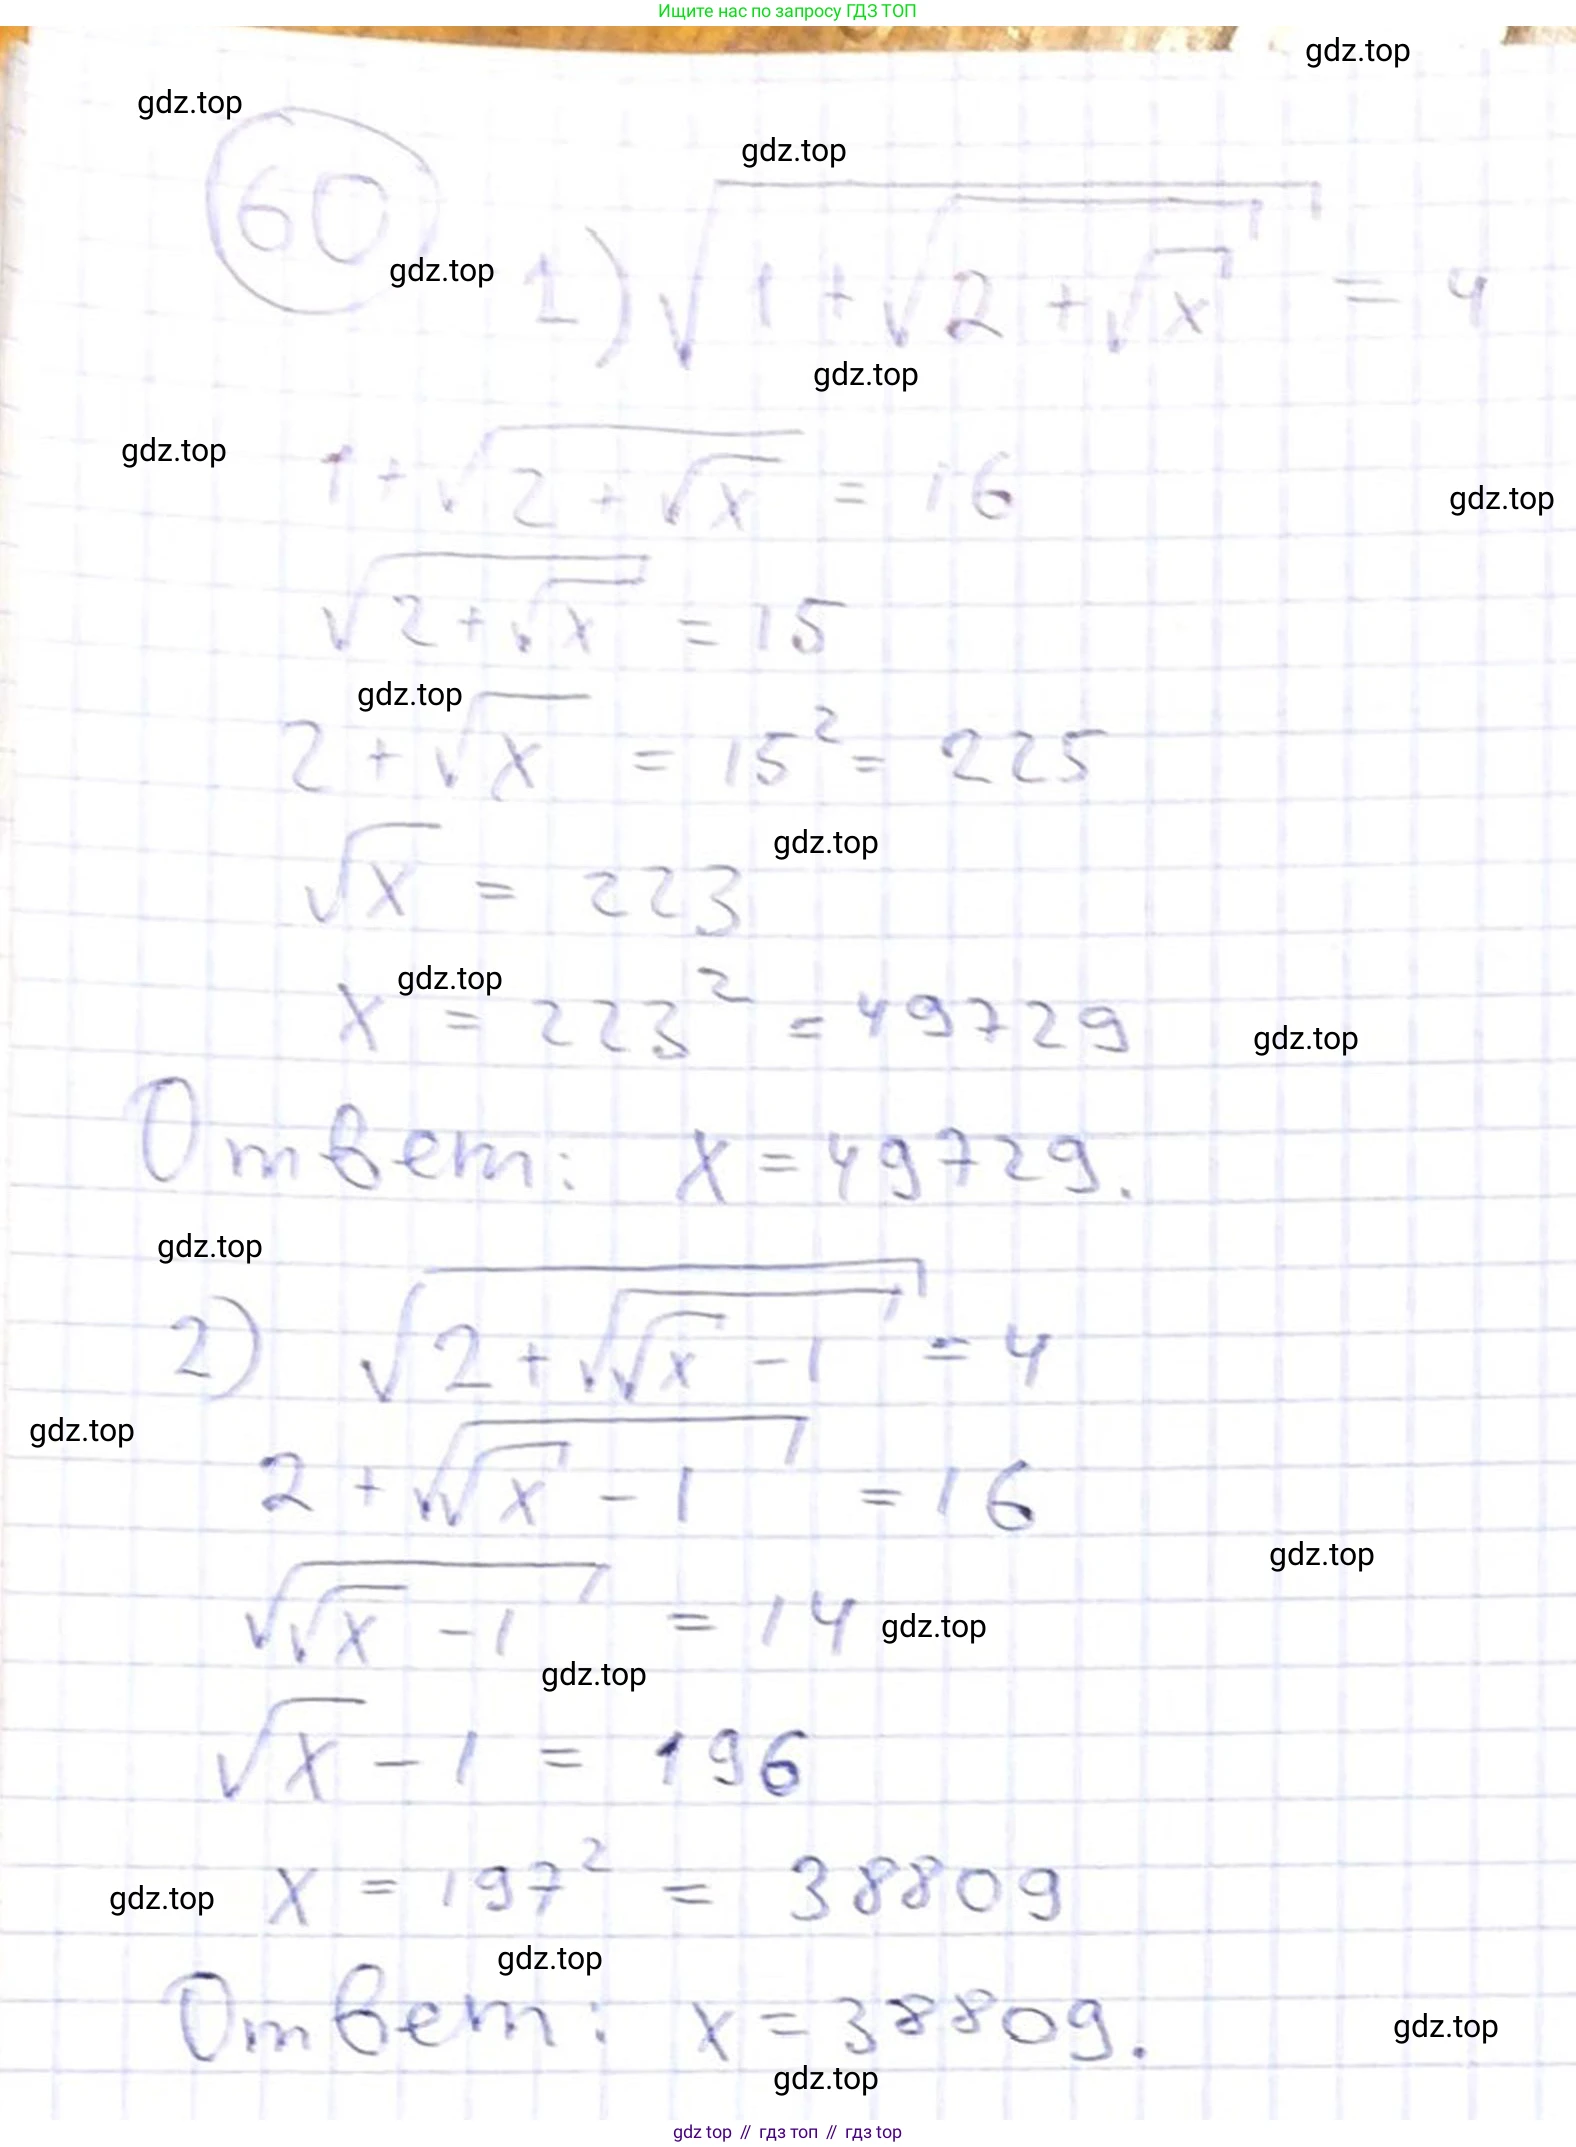 Ищите нас по запросу ГДЗ ТОП
gdz.top
gdz.top
gdz.top
60 gdz.top 1) √(1 + √(2 + √x)) = 4
gdz.top
gdz.top 1 + √(2 + √x) = 16
gdz.top
√(2 + √x) = 15
gdz.top
2 + √x = 15² = 225
gdz.top
√x = 223
gdz.top
x = 223² = 49729
gdz.top
Ответ: x = 49729.
gdz.top
2) √(2 + √(√x - 1)) = 4
gdz.top
2 + √(√x - 1) = 16
gdz.top
√(√x - 1) = 14 gdz.top
gdz.top
√x - 1 = 196
gdz.top x = 197² = 38809
gdz.top
Ответ: x = 38809.
gdz.top
gdz.top
gdz top // гдз топ // гдз top